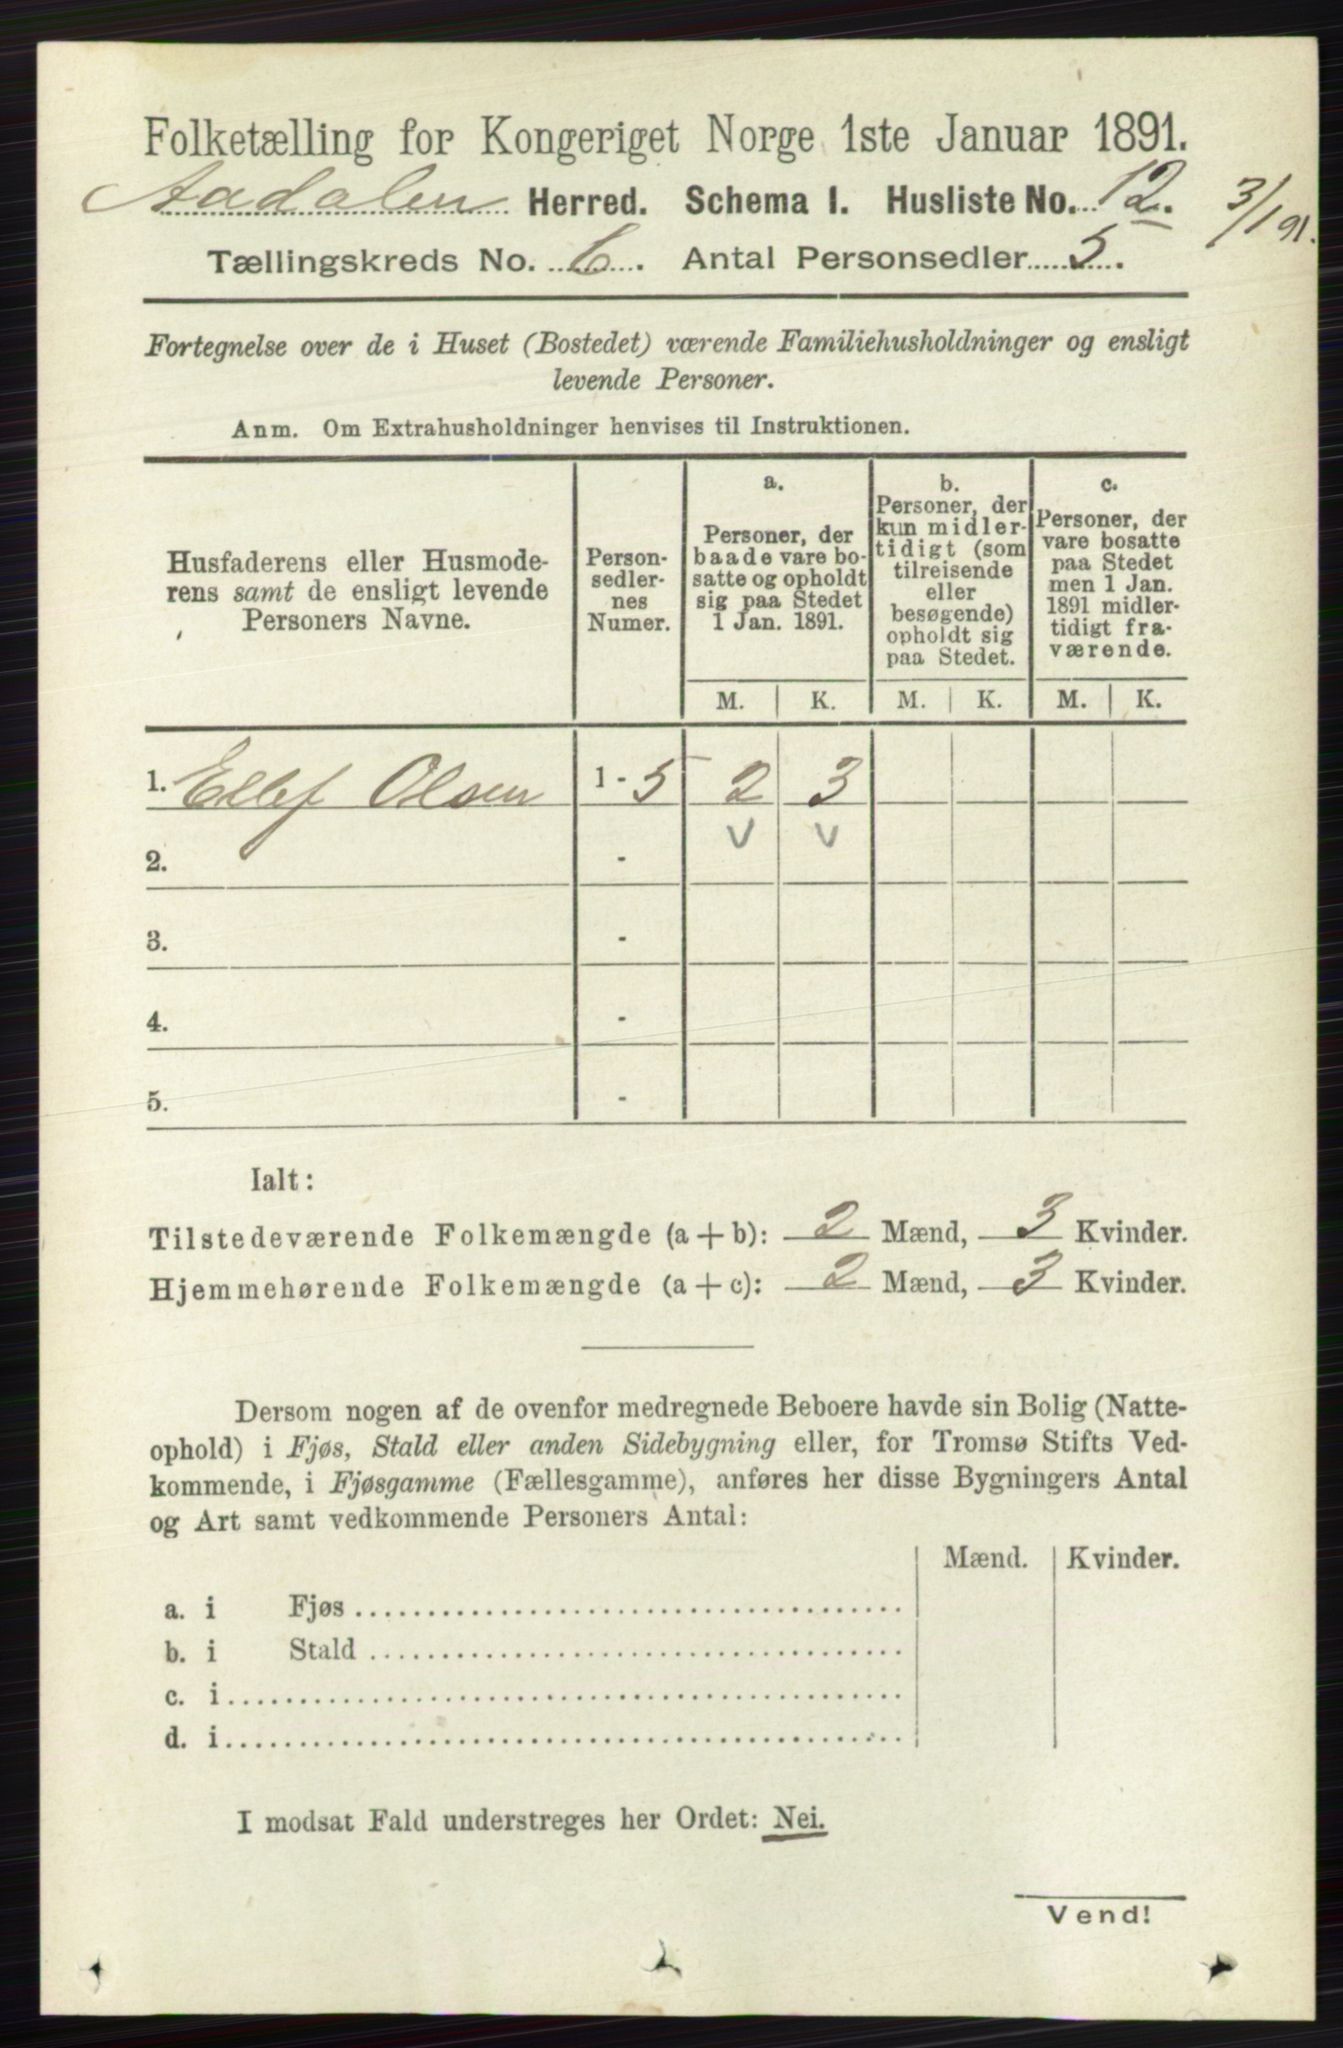 Folketælling for Kongeriget Norge 1ste Januar 1891.
Aadalen Herred. Schema I. Husliste No. 12.
3/1 91.
Tællingskreds No. 6. Antal Personsedler 5.
Fortegnelse over de i Huset (Bostedet) værende Familiehusholdninger og ensligt
levende Personer.
Anm. Om Extrahusholdninger henvises til Instruktionen.
Husfaderens eller Husmode-
rens samt de ensligt levende
Personers Navne.
Person-
sedler-
nes
Numer.
a.
Personer, der
baade vare bo-
satte og opholdt
sig paa Stedet
1 Jan. 1891.
b.
Personer, der
kun midler-
tidigt (som
tilreisende
eller
besøgende)
opholdt sig
paa Stedet.
c.
Personer, der
vare bosatte
paa Stedet
men 1 Jan.
1891 midler-
tidigt fra-
værende.
M. K. M. K. M. K.
1. Ellef Olsen 1 - 5 2 3
2. -
3. -
4. -
5. -
Ialt:
Tilstedeværende Folkemængde (a + b): 2 Mænd, 3 Kvinder.
Hjemmehørende Folkemængde (a + c): 2 Mænd, 3 Kvinder.
Dersom nogen af de ovenfor medregnede Beboere havde sin Bolig (Natte-
ophold) i Fjøs, Stald eller anden Sidebygning eller, for Tromsø Stifts Ved-
kommende, i Fjøsgamme (Fællesgamme), anføres her disse Bygningers Antal
og Art samt vedkommende Personers Antal:
Mænd. Kvinder.
a. i Fjøs
b. i Stald
c. i
d. i
I modsat Fald understreges her Ordet: Nei.
Vend!